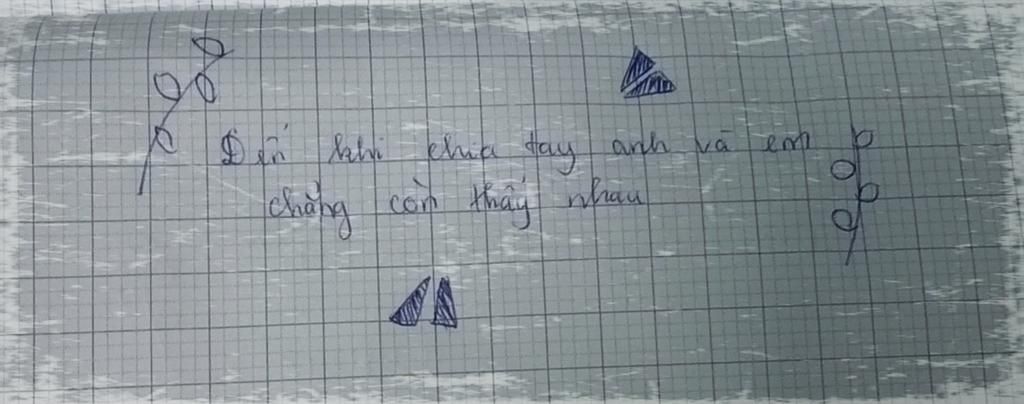 Đến khi chia tay anh và em
chẳng còn thấy nhau